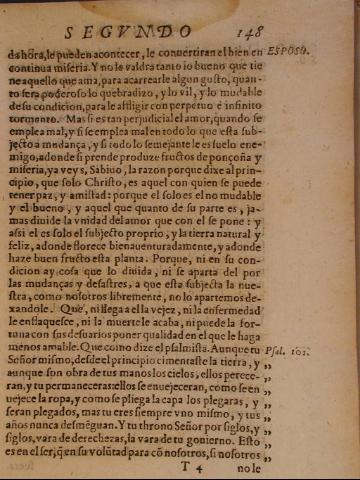 SEGVNDO 148
da hora, le pueden acontecer, le conuertiran el bien en ESPOSO.
continua miseria. Y no le valdra tanto lo bueno que tie
ne aquello que ama, para acarrearle algun gusto, quan-
to sera poderoso lo quebradizo, y lo vil, y lo mudable
de su condicion, para le affligir con perpetuo é infinito
tormento. Mas si es tan perjudicial el amor, quando se
emplea mal, y si se emplea mal en todo lo que esta sub-
jecto a mudança, y si todo lo semejante le es suelo ene-
migo, adonde si prende produze fructos de ponçoña y
miseria, ya veys, Sabino, la razon porque dixe al prin-
cipio, que solo Christo, es aquel con quien se puede
tener paz, y amistad: porque el solo es el no mudable
y el bueno, y aquel que quanto de su parte es, ja-
mas diuide la vnidad del amor que con el se pone: y
assi el es solo el subjecto proprio, y la tierra natural y
feliz, adonde florece bienauenturadamente, y adonde
haze buen fructo esta planta. Porque, ni en su con-
dicion ay cosa que lo diuida, ni se aparta del por
las mudanças y desastres, a que esta subjecta la nue-
stra, como nosotros libremente, no lo apartemos de-
xandole. Que, ni llega a el la vejez, ni la enfermedad
le enflaquesce, ni la muerte le acaba, ni puede la for-
tuna con sus desuarios poner qualidad en el que le haga
menos amable. Que como dize el psalmista. Aunque tu Psal. 101.
Señor mismo, desde el principio cimentaste la tierra, y „
aunque son obra de tus manos los cielos, ellos perece- „
ran, y tu permaneceras: ellos se enuejeceran, como se en „
uejece la ropa, y como se pliega la capa los plegaras, y „
seran plegados, mas tu eres siempre vno mismo, y tus „
años nunca desmẽguan. Y tu throno Señor por siglos, y „
siglos, vara de derechezas, la vara de tu gouierno. Esto „
es en el ser, q̃ en su volũtad para cõ nosotros, si nosotros „
T 4 no le